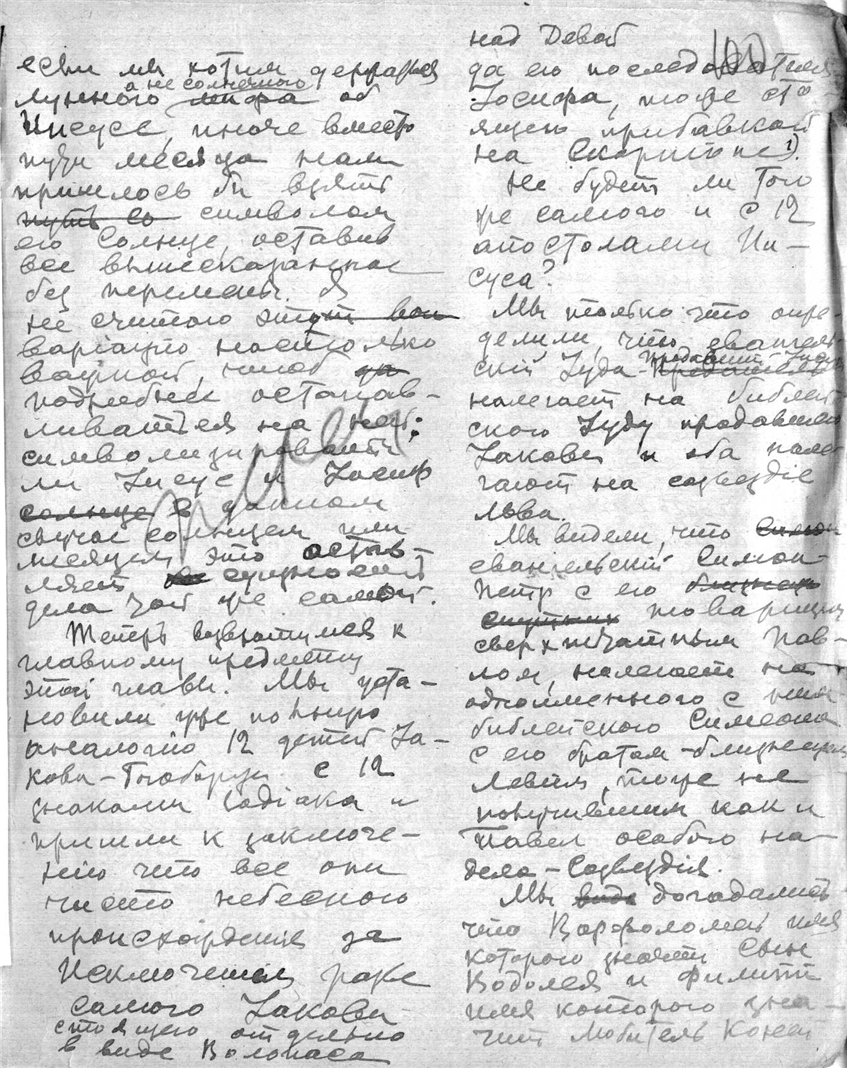 если мы хотим держаться
а не солнечного
лунного мифа об
Иисусе, иначе вместо
пути месяца нам
пришлось бы взять
путь со символом
его Солнце, оставив
все вышесказанное
без перемены. Я
не считаю этот вон
варіанту настолько
важной, чтоб
подробнее останав-
ливаться на ней:
символизировать
ли Іисус и Іосиф
солнце в данном
случае солнцем или
месяцем, это остав-
ляет сущность
дела той же самой.
Теперь возвратимся к
главному предмету
этой главы. Мы уста-
новили уже полную
аналогію 12 детей Іа-
кова-Богоборца с 12
знаками Зодіака и
пришли к заключе-
нію что все они
чисто небесного
происхождения за
исключеніем разве
самого Іакова
стоящего отдельно
в виде Волопаса
над Девой
да его последователя
Іосифа, тоже сто-
ящего прибавкой
на Скорпионе 1).
Не будет ли того
же самого и с 12
апостолами Ии-
суса?
Мы только что опре-
делили, что евангель-
скій Іуда-Предатель
налегает на библей-
ского Іуду продавшего
Іакова и оба нале-
гают на созвездіе
Льва.
Мы видели, что Симон
евангельский Симон-
Петр с его близнец
спутник товарищем
сверхштатным Пав-
лом, налегает на
одноименного с ним
библейского Симеона
с его братом-близнецом
Левием, тоже не
получившим как и
Павел особого на-
дела-Созвездія.
Мы виде догадались
что Варфоломей имя
которого значит сын
Водолея и Филипп
имя которого зна-
чит Любитель Коней